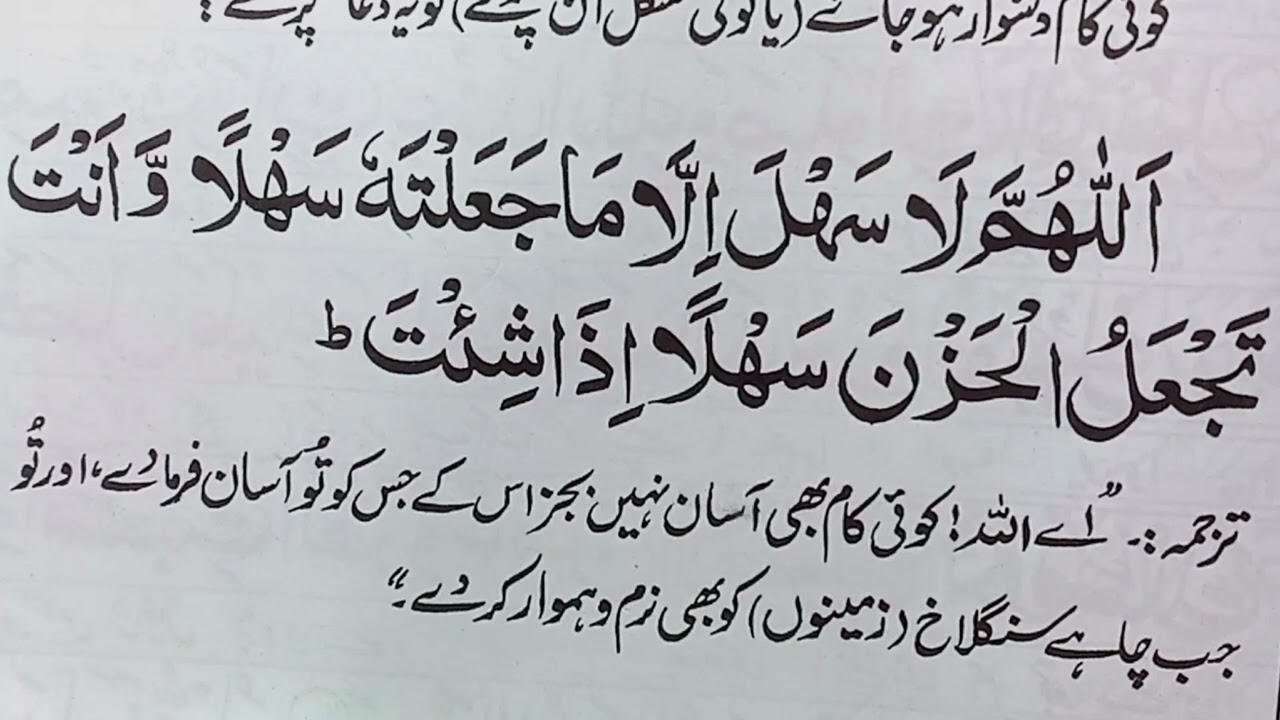 کوئی کام دشوار ہو جائے (یا کوئی مشکل آن پڑے) تو یہ دعا پڑھے :
اَللّٰهُمَّ لَا سَهْلَ اِلَّا مَا جَعَلْتَهٗ سَهْلًا وَّ اَنْتَ
تَجْعَلُ الْحَزْنَ سَهْلًا اِذَا شِئْتَ ط
ترجمہ :۔ ”اے اللہ! کوئی کام بھی آسان نہیں بجز اس کے جس کو تُو آسان فرما دے، اور تُو
جب چاہے سنگلاخ (زمینوں) کو بھی نرم و ہموار کر دے۔“